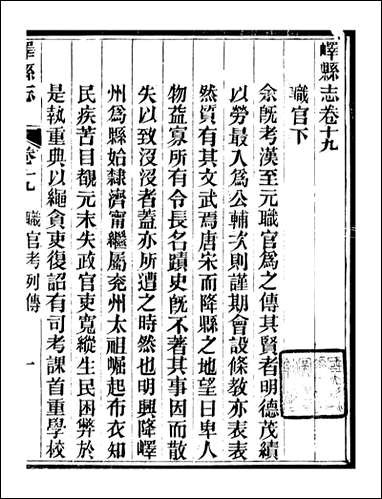 嶧縣志卷十九
職官下
余既考漢至元職官為之傳其賢者明德茂績
以勞最入為公輔次則謹期會設條教亦表表
然質有其文武焉唐宋而降縣之地望日卑人
物益寡所有令長名蹟史既不著其事因而散
失以致沒沒者蓋亦所遭之時然也明興降嶧
州為縣始隸濟甯繼屬兗州太祖崛起布衣知
民疾苦目覩元末失政官吏寬縱生民困弊於
是執重典以繩貪吏復詔有司考課首重學校
嶧縣志
卷十九
職官考列傳
一